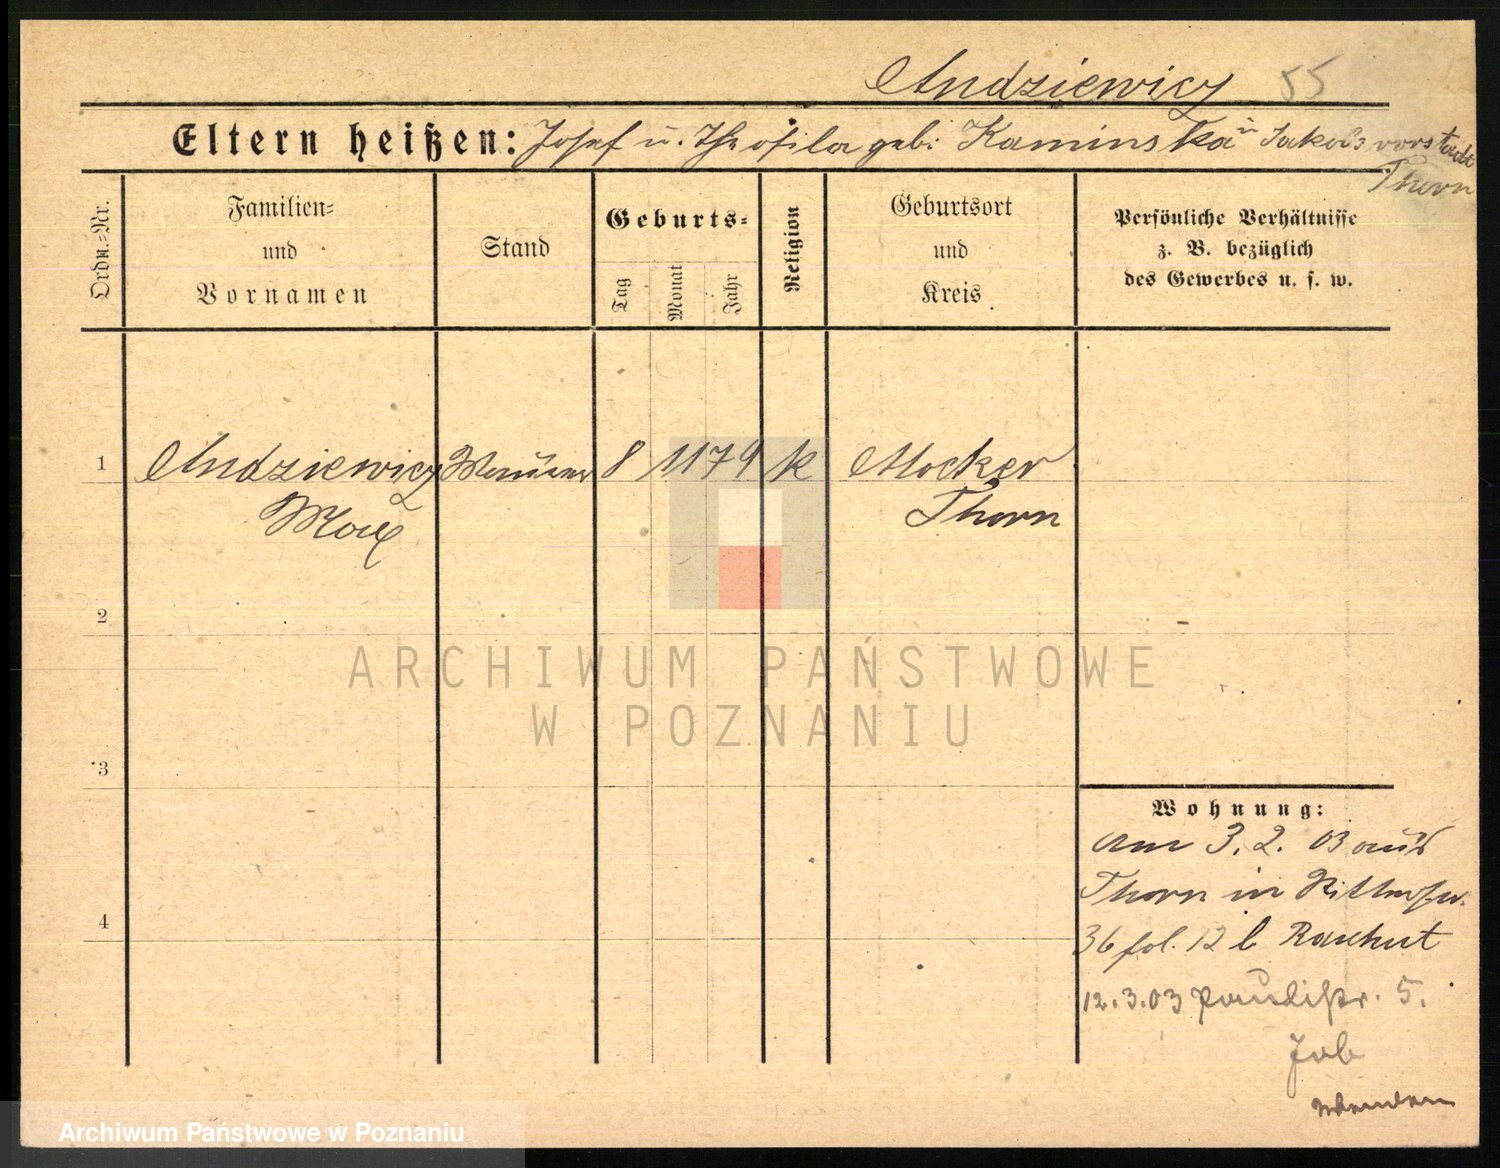 Andziewicz 55
Eltern heißen: Josef u. Theofila geb: Kaminska in Jakobsvorstadt
Thorn
Ordn.=Nr.
Familien=
und
Vornamen
Stand
Geburts=
Tag
Monat
Jahr
Religion
Geburtsort
und
Kreis
Persönliche Verhältnisse
z. B. bezüglich
des Gewerbes u. s. w.
1
Andziewicz Maurer 8 11 79 k Mocker
Max Thorn
2
3
4
Wohnung:
am 3. 2. 03 aus
Thorn in
36 fol. 12 b
12.3.03 Paulistr. 5.
ARCHIWUM PAŃSTWOWE
W POZNANIU
Archiwum Państwowe w Poznaniu